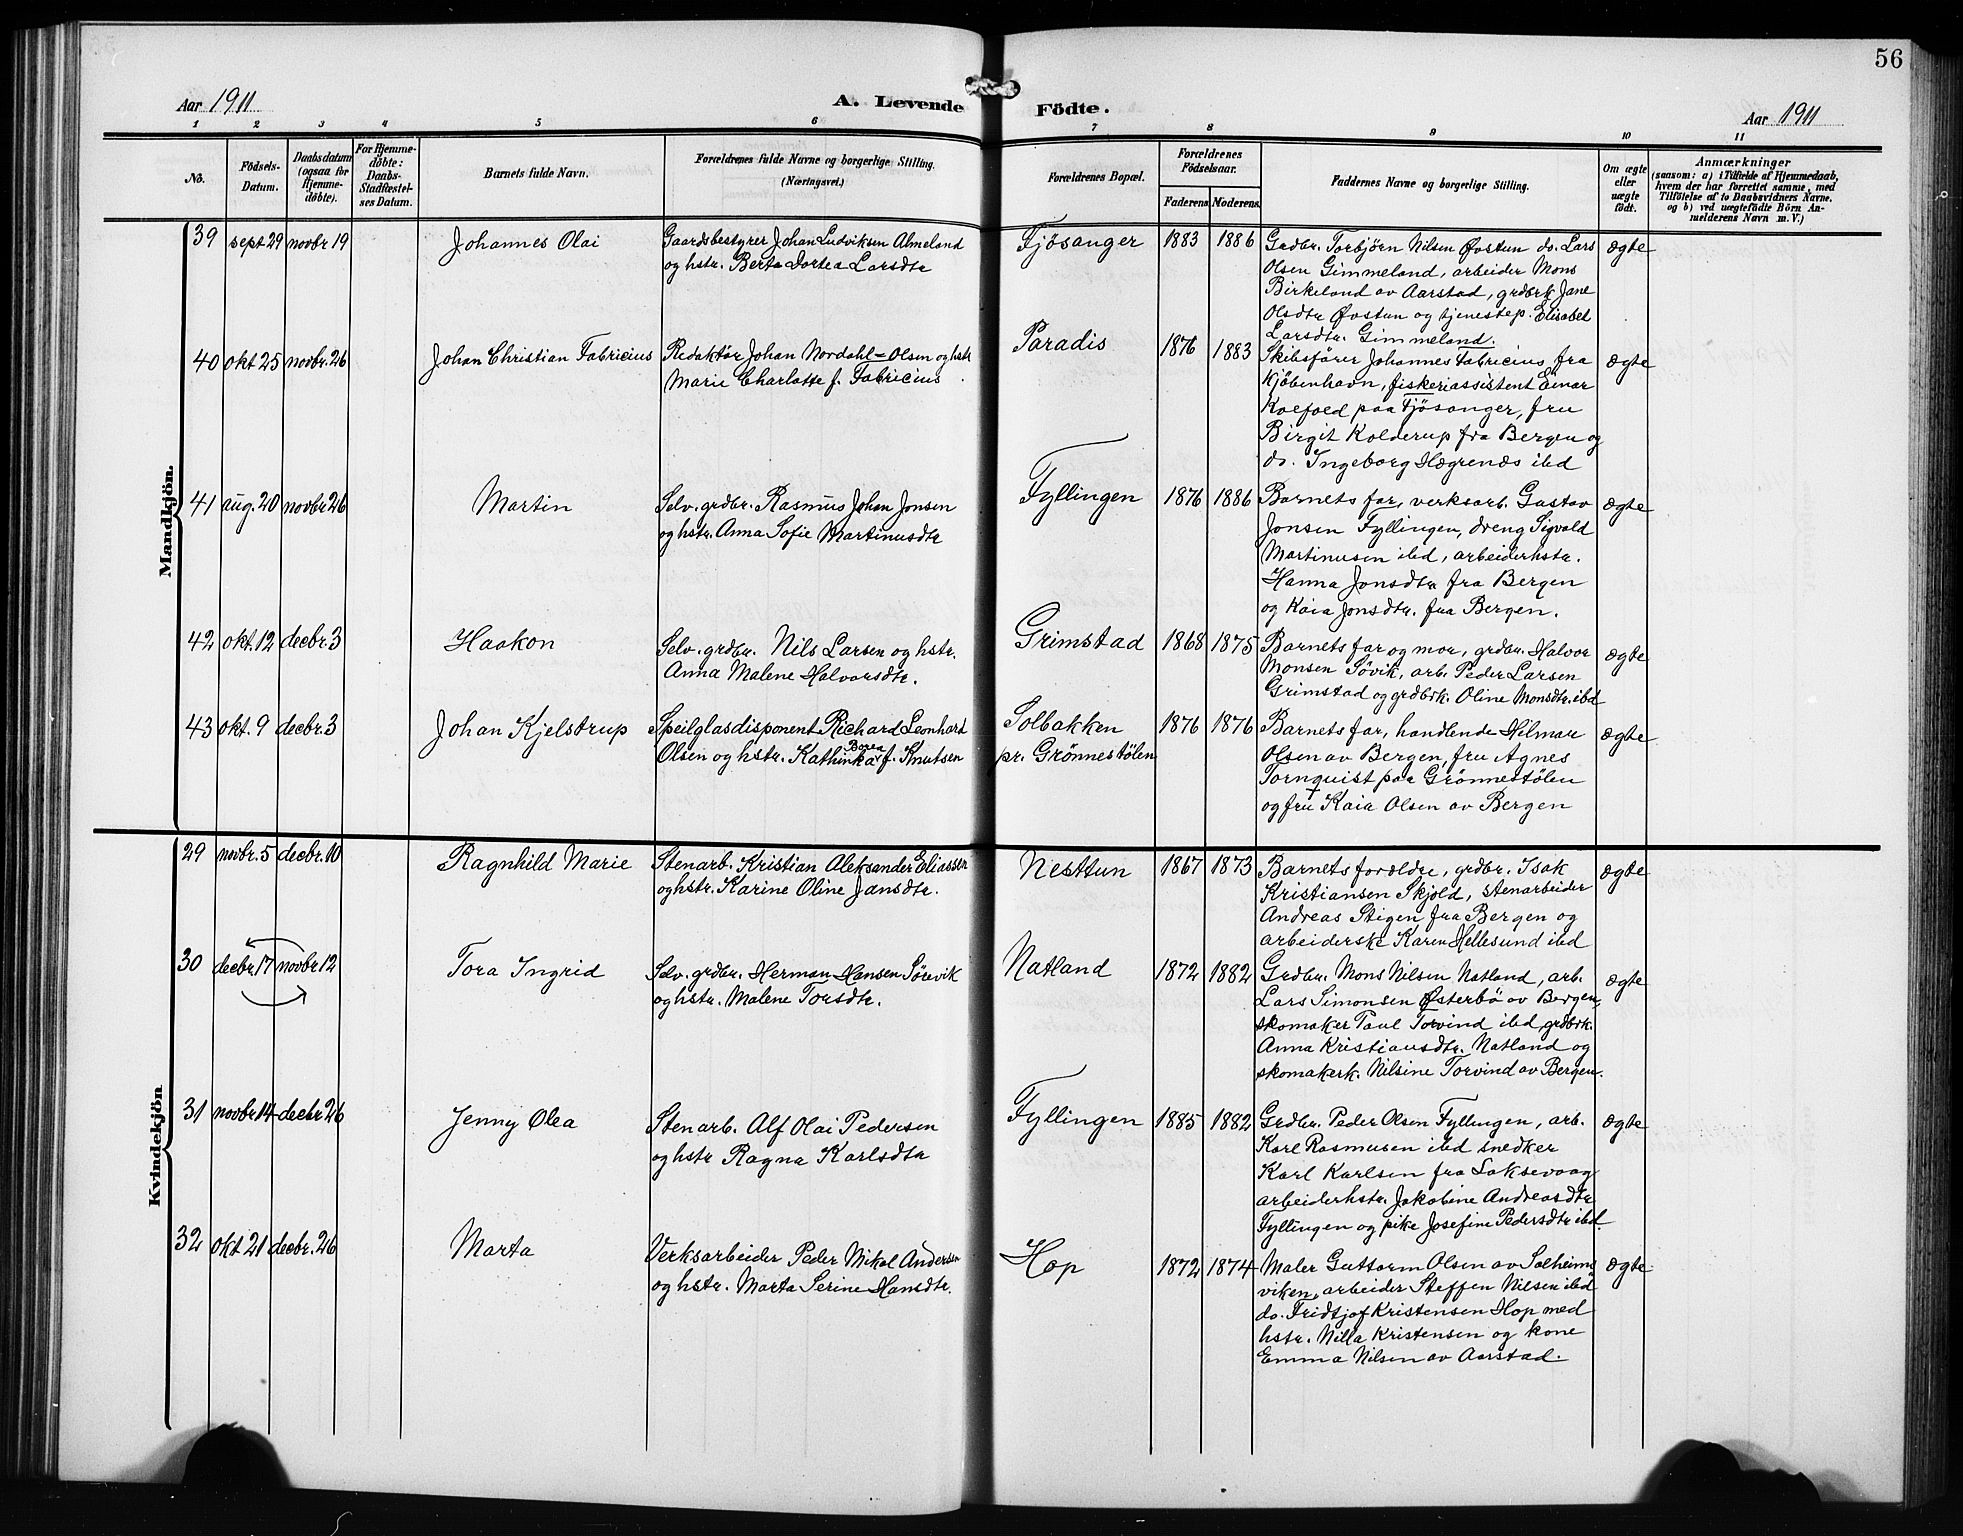 56
Aar 1911
A. Levende Födte.
Aar 1911
1 2 3 4 5 6 7 8 9 10 11
No.
Födsels-Datum.
Daabsdatum (ogsaa for Hjemme-døbte).
For Hjemme-døbte: Daabs-Stadfæstel-ses Datum.
Barnets fulde Navn.
Forældrenes fulde Navne og borgerlige Stilling.
(Næringsvei.)
Forældrenes Bopæl.
Forældrenes Födselsaar.
Faderens Moderens
Faddernes Navne og borgerlige Stilling.
Om ægte eller uægte født.
Anmærkninger
(saasom: a) i Tilfælde af Hjemmedaab,
hvem der har forrettet samme, med
Tilföielse af to Daabsvidners Navne.
og b) ved uægtefödte Börn An-
melderens Navn m. V.)
Mandkjön.
39 sept 29 novbr 19 Johannes Olai
Gaardsbestyrer Johan Ludviksen Almeland
og hstr. Berta Dortea Larsdtr
Fjösanger 1883 1886
Grdbr. Torbjørn Nilsen Øvstun do. Lars
Olsen Gimmeland, arbeider Mons
Birkeland av Aarstad, grdbrk Jane
Olsdtr Øvstun og tjenestep. Elisabet
Larsdtr. Gimmeland.
ægte
40 okt 25 novbr. 26 Johan Christian Fabricius
Redaktør Johan Nordahl-Olsen og hstr
Marie Charlotte f. Fabricius
Paradis 1876 1883
Skibsfører Johannes Fabricius fra
Kjöbenhavn, fiskeriassistent Einar
Koefoed paa Fjösanger, fru
Birgit Kolderup fra Bergen og
do. Ingeborg Hegrenæs ibd
ægte
41 aug. 20 novbr 26 Martin
Selv. grdbr. Rasmus Johan Jonsen
og hstr. Anna Sofie Martinusdtr
Fyllingen 1876 1886
Barnets far, verksarb. Gustav
Jonsen Fyllingen, dreng Sigvald
Martinusen ibd, arbeiderhstr.
Hanna Jonsdtr fra Bergen
og Kaia Jonsdtr. fra Bergen.
ægte
42 okt. 12 decbr. 3 Haakon
Selv. grdbr. Nils Larsen og hstr.
Anna Malene Halvorsdtr.
Grimstad 1868 1875
Barnets far og mor, grdbr. Halvor
Monsen Søvik, arb. Peder Larsen
Grimstad og grdbrk. Oline Monsdtr. ibd
ægte
43 okt. 9 decbr. 3 Johan Kjelstrup
Speilglasdisponent Richard Leonhard
Olsen og hstr. Kathinka Borea f. Knutsen
Solbakken
pr. Grönnestölen
1876 1876
Barnets far, handlende Hilmar
Olsen av Bergen, fru Agnes
Tornquist paa Grönnestölen
og fru Kaia Olsen av Bergen
ægte
Kvindekjön
29 novbr. 5 decbr. 10 Ragnhild Marie
Stenarb. Kristian Aleksander Eliassen
og hstr. Karine Oline Jansdtr.
Nesttun 1867 1873
Barnets forældre, grdbr. Isak
Kristiansen Skjold, stenarbeider
Andreas Stigen fra Bergen og
arbeiderske Karen Hellesund ibd
ægte
30 decbr. 17 novbr. 12 Tora Ingrid
Selv. grdbr. Herman Hansen Sörevik
og hstr. Malene Torsdtr.
Natland 1872 1882
Grdbr. Mons Nilsen Natland, arb.
Lars Simonsen Østerbö av Bergen,
skomaker Paul Torvind ibd, grdbrk.
Anna Kristiansdtr. Natland og
skomakerk. Nilsine Torvind av Bergen.
ægte
31 novbr 14 decbr 26 Jenny Olea
Stenarb. Alf Olai Pedersen
og hstr Ragna Karlsdtr
Fyllingen 1885 1882
Grdbr. Peder Olsen Fyllingen, arb.
Karl Rasmusen ibd snedker
Karl Karlsen fra Laksevaag
arbeiderhstr. Jakobine Andreasdtr
Fyllingen og pike Josefine Pedersdtr ibd.
ægte
32 okt 21 decbr. 26 Marta
Verksarbeider Peder Mikal Andersen
og hstr. Marta Serine Hansdtr.
Hop 1872 1874
Maler Guttorm Olsen av Solheims
viken, arbeider Steffen Nilsen ibd
do. Fridtjof Kristensen Hop med
hstr. Nilla Kristensen og kone
Emma Nilsen av Aarstad.
ægte